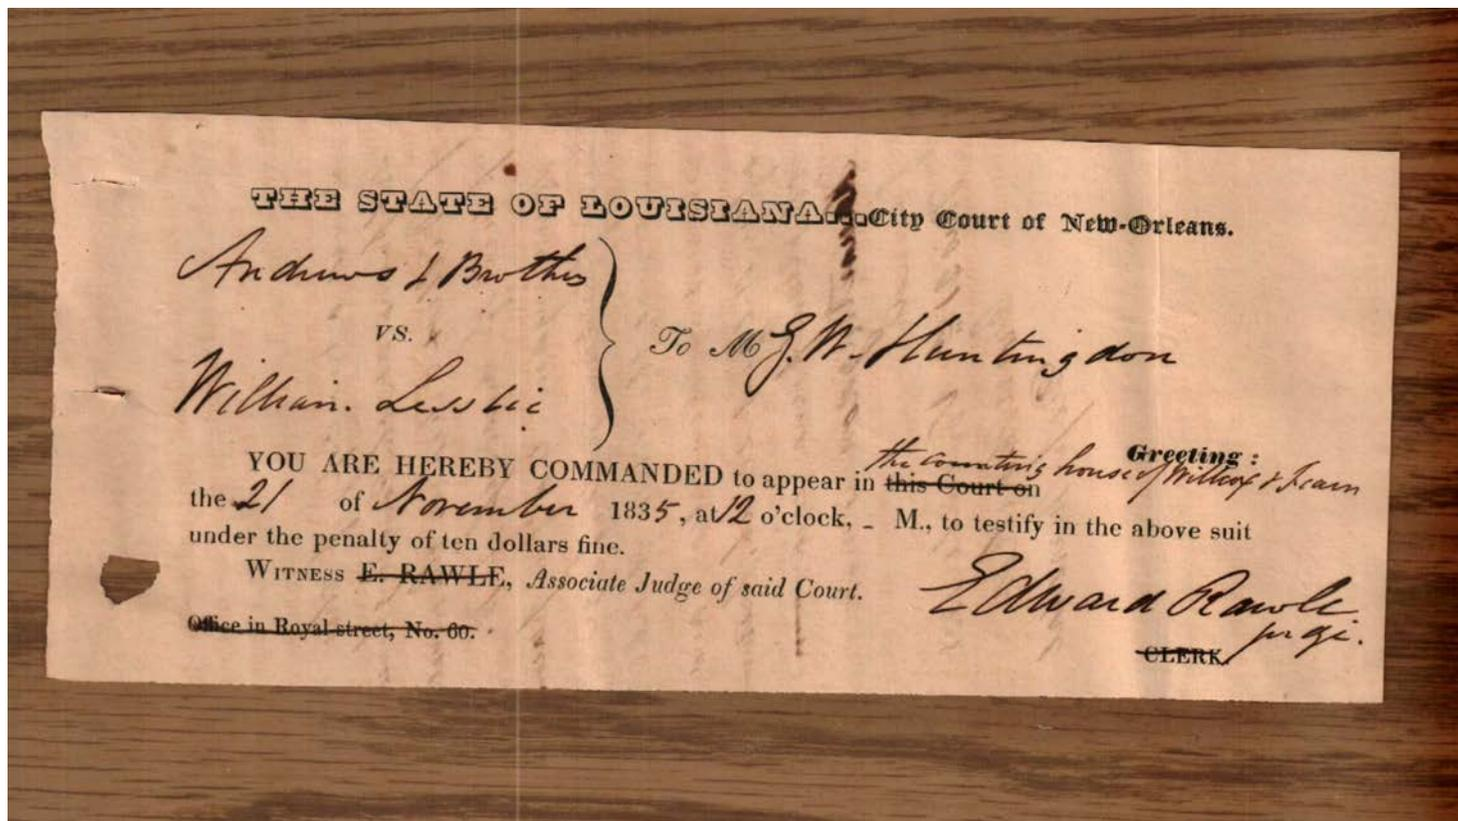 THE STATE OF LOUISIANA...City Court of New-Orleans.
Andrews & Brothers
VS.
William Lesslie
To M G. W. Huntingdon
Greeting:
the counting house of Willcox &
YOU ARE HEREBY COMMANDED to appear in this Court on
the 21 of November 1835, at 12 o'clock, – M., to testify in the above suit
under the penalty of ten dollars fine.
WITNESS E. RAWLE, Associate Judge of said Court.
Edward Rawle
judge.
Office in Royal street, No. 60.
CLERK.